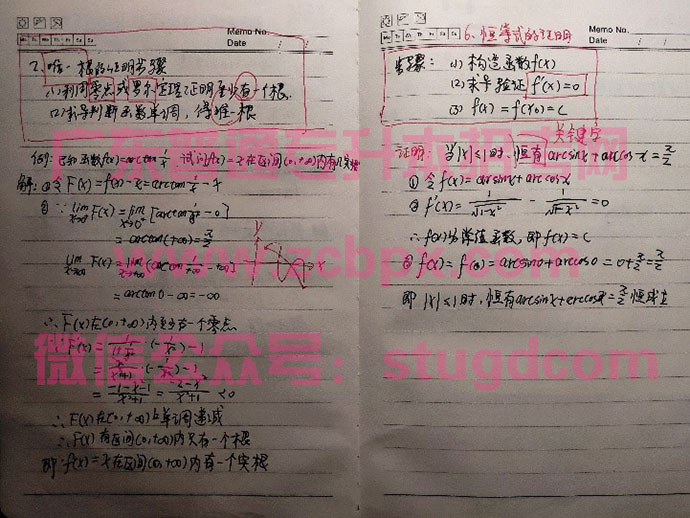 Memo No.
Date / /
2、唯一根的证明步骤
(1)利用零点或罗尔定理证明至少有一个根.
(2)求导判断函数单调,得唯一根
例:已知函数f(x)=arctan 1/x 试问f(x)=x在区间(0,+∞)内有几实根
解:①令F(x)=f(x)-x=arctan 1/x -x
② ∵ lim x→0⁺ F(x)=lim x→0⁺ [arctan 1/x -0]
=arctan(+∞)=π/2
lim x→+∞ F(x)=lim x→+∞ (arctan 1/+∞ -+∞)
=arctan0-∞=-∞
∴F(x)在(0,+∞)内至少有一个零点
F'(x)= (-1/x²)-1
= (-1/x²)-1
=(-1-x²-1)/(x²+1)=(-2-x²)/(x²+1)<0
∴F(x)在(0,+∞)上单调递减
∴F(x)在区间(0,+∞)内只有一个根
即:f(x)=x在区间(0,+∞)内有一个实根
y
x
Memo No.
6、恒等式的证明
Date / /
步骤:(1)构造函数f(x)
(2)求导验证f'(x)=0
(3) f(x)=f(x₀)=C
关键字
证明:当|x|≤1时,恒有arcsinx+arccosx=π/2
①令f(x)=arcsinx+arccosx
②f'(x)=1/√(1-x²) - 1/√(1-x²)=0
∴f(x)为常值函数,即f(x)=C
③f(x)=f(0)=arcsin0+arccos0=0+π/2=π/2
即|x|≤1时,恒有arcsinx+arccosx=π/2恒成立
广东普通专升本招生网
www.zcbpx.com
微信公众号:stugdcom